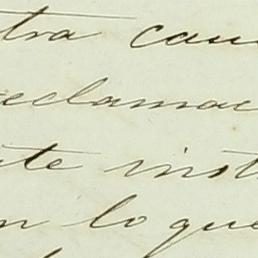 tra cau
eclamac
te inst
n lo que